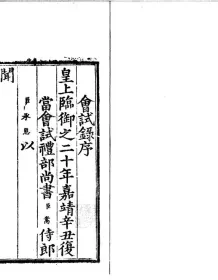 會試錄序
皇上臨御之二十年嘉靖辛丑復
當會試禮部尚書臣嵩侍郎
臣承恩以
聞